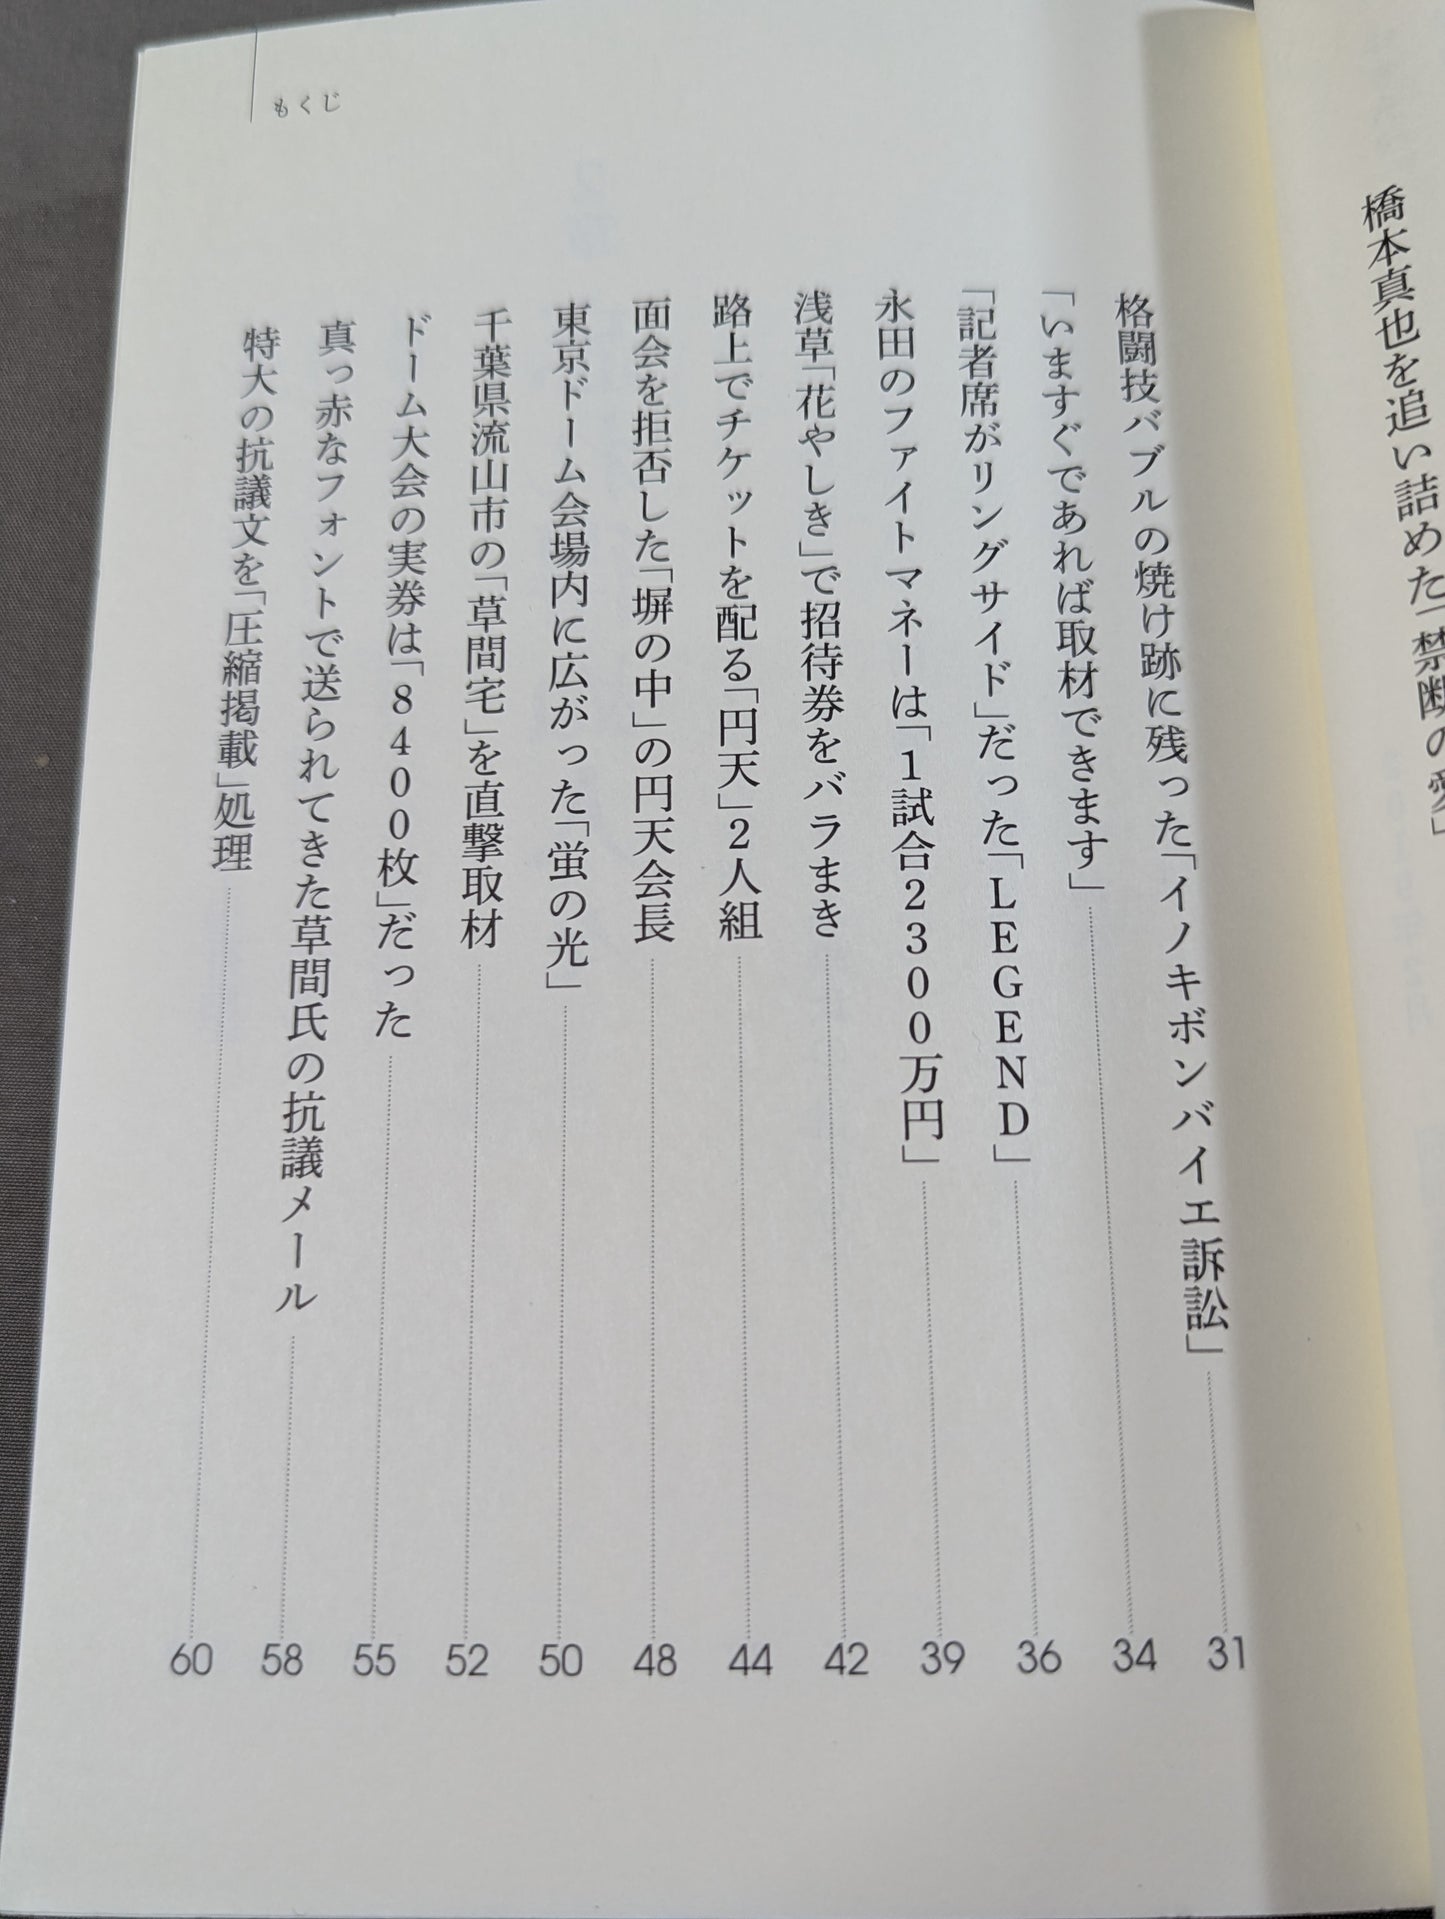 橋本真也を追い詰めた「禁断の愛」
もくじ
格闘技バブルの焼け跡に残った「イノキボンバイエ訴訟」 31
「いますぐであれば取材できます」 34
「記者席がリングサイド」だった「LEGEND」 36
永田のファイトマネーは「1試合2300万円」 39
浅草「花やしき」で招待券をバラまき 42
路上でチケットを配る「円天」2人組 44
面会を拒否した「塀の中」の円天会長 48
東京ドーム会場内に広がった「蛍の光」 50
千葉県流山市の「草間宅」を直撃取材 52
ドーム大会の実券は「8400枚」だった 55
真っ赤なフォントで送られてきた草間氏の抗議メール 58
特大の抗議文を「圧縮掲載」処理 60